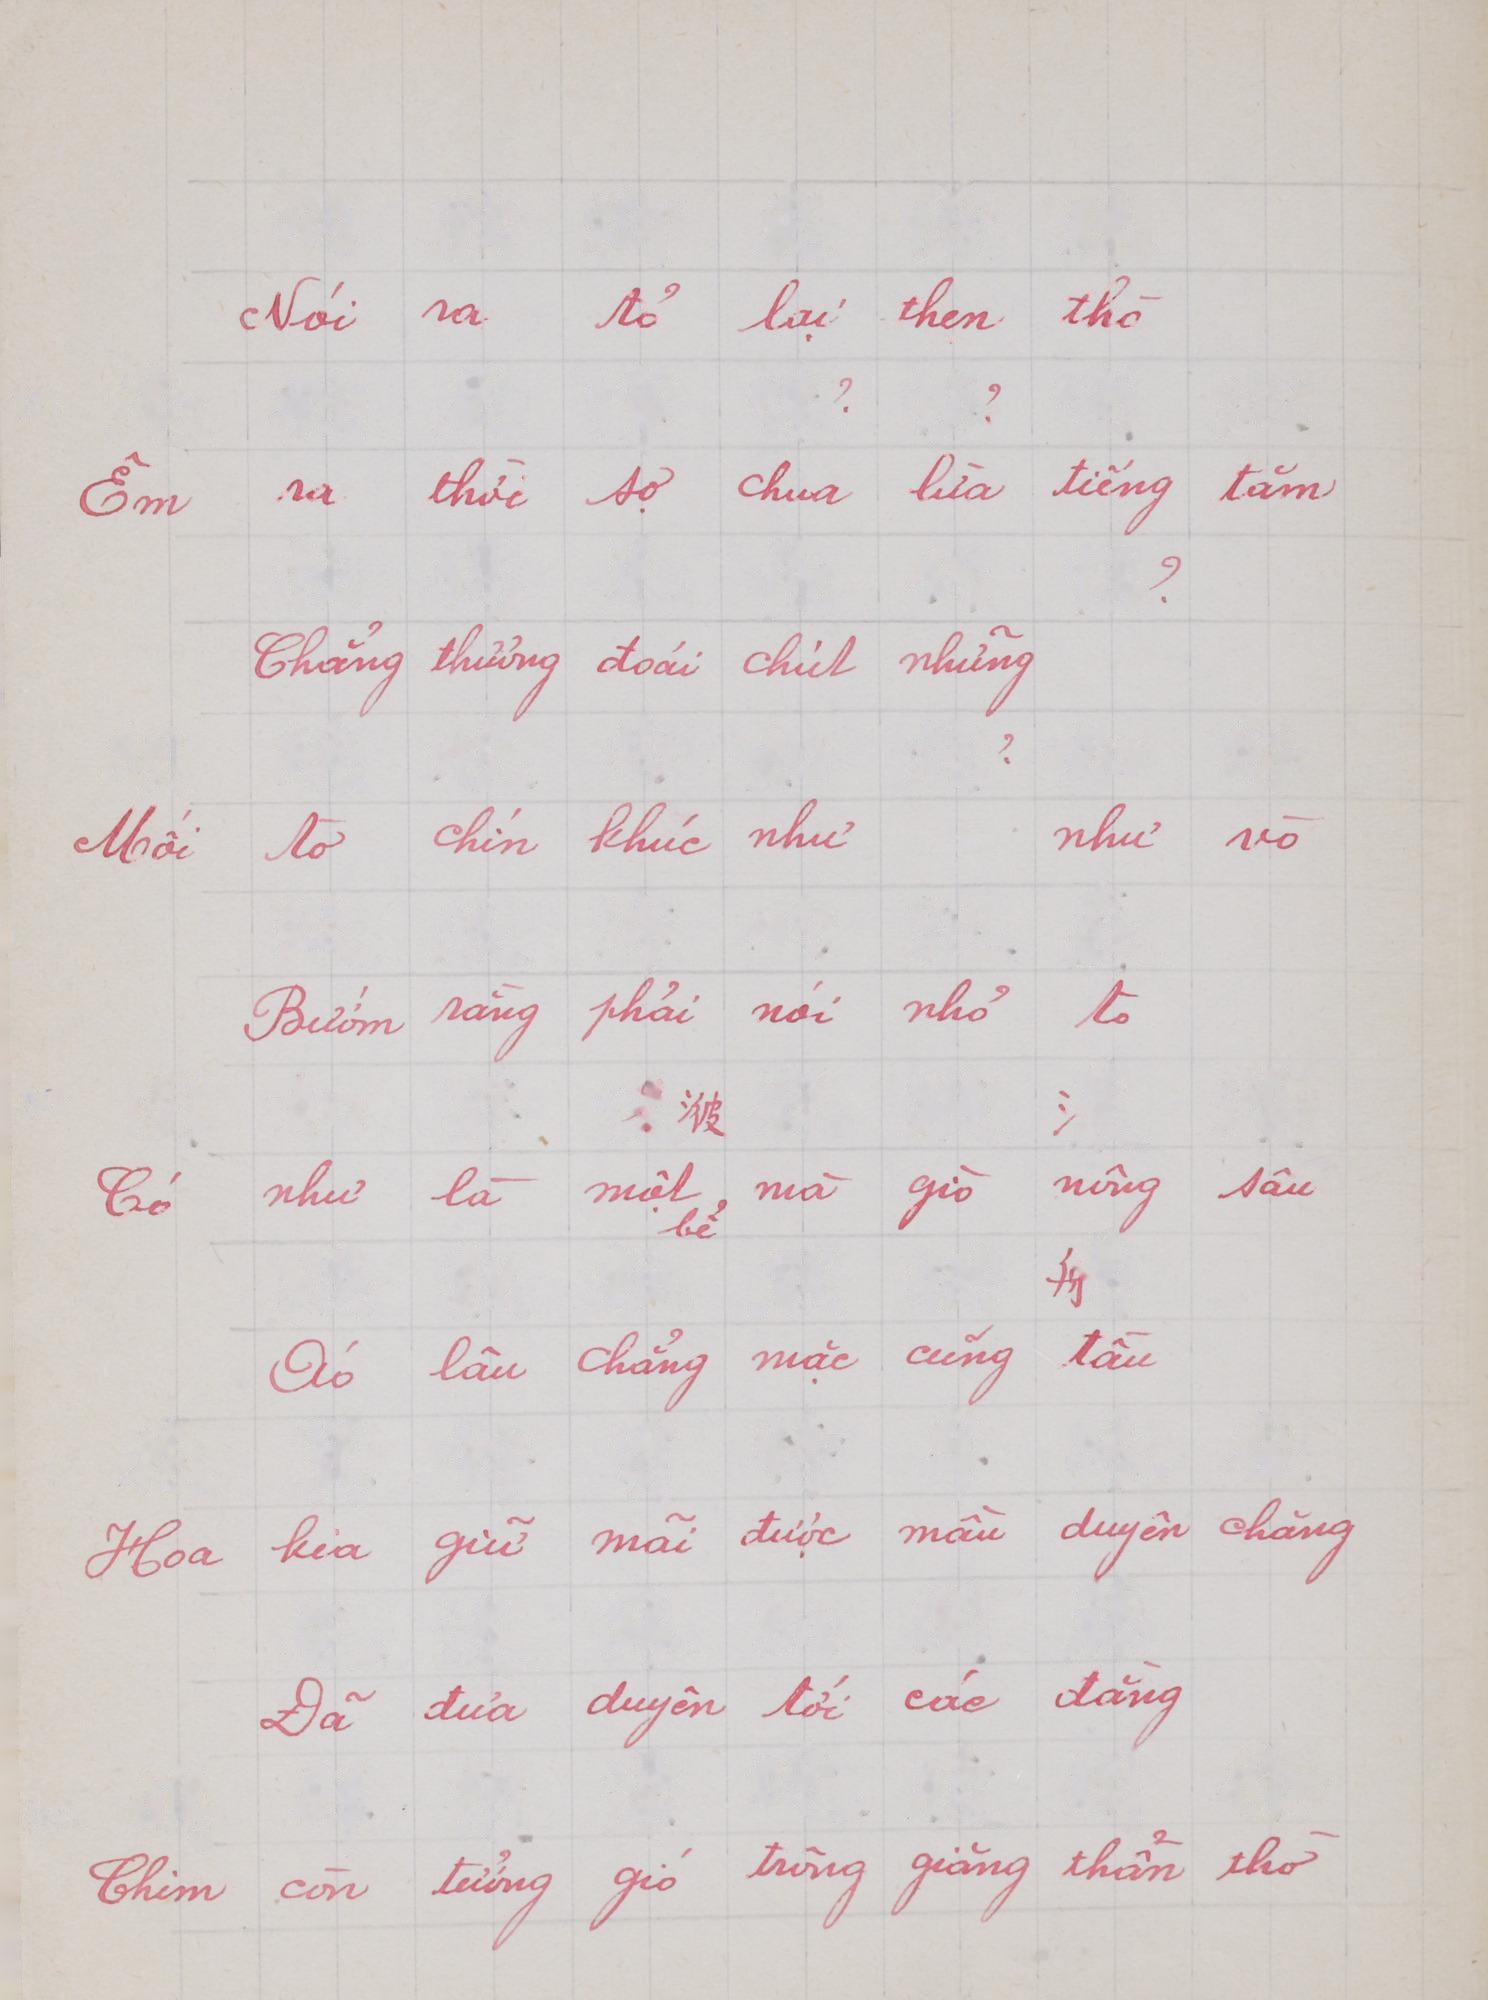 Nói ra tỏ lại thẹn thò
? ?
Ễm ra thời sợ chua lừa tiếng tăm
?
Chẳng thương đoái chút những
?
Mối tơ chín khúc như như vò
Bướm rằng phải nói nhỏ to
Có như là một mà giò nông sâu
bể
Áo lâu chẳng mặc cũng tầu
Hoa kia giữ mãi được mầu duyên chăng
Đã đưa duyên tới các đằng
Chim còn tưởng gió trông giăng thẩn thơ